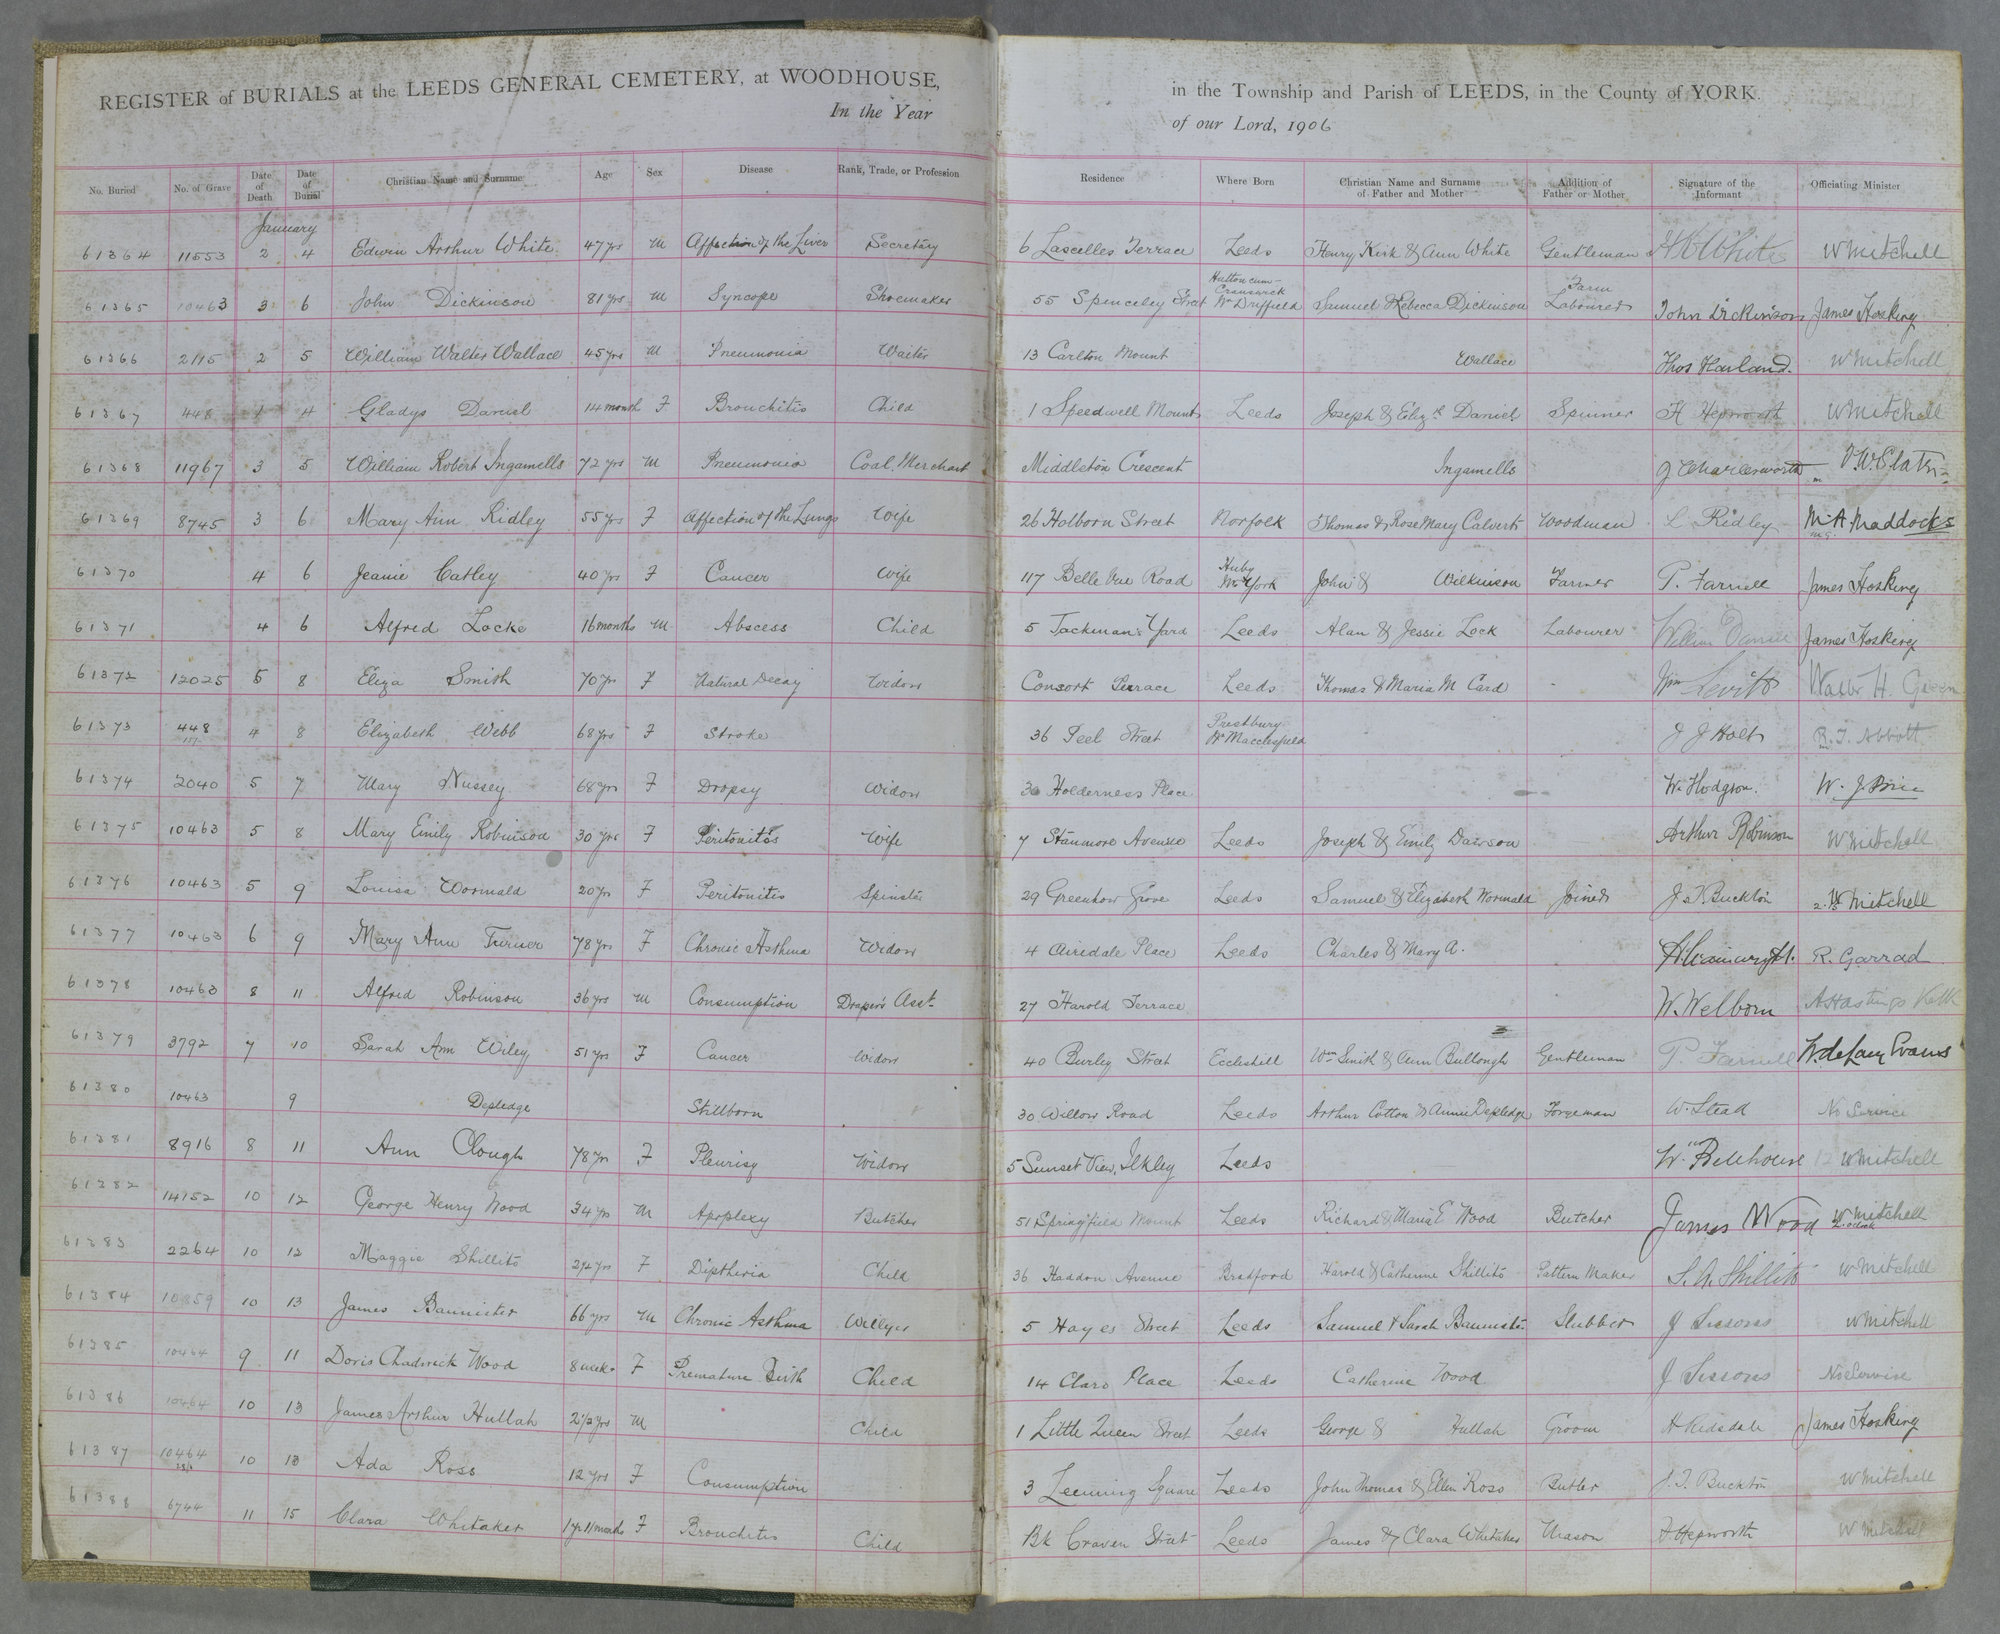 REGISTER of BURIALS at the LEEDS GENERAL CEMETERY, at WOODHOUSE, in the Township and Parish of LEEDS, in the County of YORK.
In the Year of our Lord, 1906
No. Buried No. of Grave Date of Death Date of Burial Christian Name and Surname Age Sex Disease Rank, Trade, or Profession Residence Where Born Christian Name and Surname of Father and Mother Addition of Father or Mother Signature of the Informant Officiating Minister
January
61364 11553 2 4 Edwin Arthur White 47 yrs M Affection of the Liver Secretary 6 Lascelles Terrace Leeds Henry Kirk & Ann White Gentleman H K White W Mitchell
61365 10463 3 6 John Dickinson 81 yrs M Syncope Shoemaker 55 Spenceley Street Hutton cum Cranswick Nr Driffield Samuel & Rebecca Dickinson Farm Labourer John Dickinson James Hosking
61366 2115 2 5 William Walter Wallace 45 yrs M Pneumonia Waiter 13 Carlton Mount Wallace Thos Harland W Mitchell
61367 448 1 4 Gladys Daniel 14 months F Bronchitis Child 1 Speedwell Mount Leeds Joseph & Elizth Daniel Spinner H Hepworth W Mitchell
61368 11967 3 5 William Robert Ingamells 72 yrs M Pneumonia Coal Merchant Middleton Crescent Ingamells J Charlesworth
61369 8745 3 6 Mary Ann Ridley 55 yrs F Affection of the Lungs Wife 26 Holborn Street Norfolk Thomas & Rose Mary Calvert Woodman L Ridley M A Maddocks
61370 4 6 Jeanie Catley 40 yrs F Cancer Wife 117 Belle Vue Road Huby Nr York John & Wilkinson Farmer P. Farnell James Hosking
61371 4 6 Alfred Locke 16 months M Abscess Child 5 Tackman's Yard Leeds Alan & Jessie Lock Labourer William James Hosking
61372 12025 5 8 Eliza Smith 70 yr F Natural Decay Widow Consort Terrace Leeds Thomas & Maria M Card - Wm Levitt Walter H. Green
61373 448 4 8 Elizabeth Webb 68 yrs F Stroke 36 Peel Street Prestbury Nr Macclesfield J J Holt R. T. Abbott
61374 2040 5 7 Mary Nussey 68 yrs F Dropsy Widow 30 Holderness Place W. Hodgson. W. J. Price
61375 10463 5 8 Mary Emily Robinson 30 yrs F Peritonitis Wife 7 Stanmore Avenue Leeds Joseph & Emily Dawson Arthur Robinson W Mitchell
61376 10463 5 9 Louisa Wormald 20 yrs F Peritonitis Spinster 29 Greenhow Grove Leeds Samuel & Elizabeth Wormald Joiner J. T. Buckton W Mitchell
61377 10463 6 9 Mary Ann Turner 78 yrs F Chronic Asthma Widow 4 Airedale Place Leeds Charles & Mary A. H Wainwright. R. Garrad
61378 10463 8 11 Alfred Robinson 36 yrs M Consumption Draper's Asst. 27 Harold Terrace W. Welborn A Hastings Kelk
61379 3792 7 10 Sarah Ann Wiley 51 yrs F Cancer Widow 40 Burley Street Eccleshill Wm Smith & Ann Bullough Gentleman P Farnell W. de Lacy Evans
61380 10463 9 Depledge Stillborn 30 Willow Road Leeds Arthur Cotton & Annie Depledge Forgeman W. Stead No Service
61381 8916 8 11 Ann Clough 78 yrs F Pleurisy Widow 5 Sunset View, Ilkley Leeds Wm Bellhouse 12 W Mitchell
61382 14152 10 12 George Henry Wood 34 yrs M Apoplexy Butcher 51 Springfield Mount Leeds Richard & Maria E Wood Butcher James Wood W Mitchell 2. oclock
61383 2264 10 12 Maggie Shillito 2 1/2 yrs F Diptheria Child 36 Haddon Avenue Bradford Harold & Catherine Shillito Pattern Maker S. A. Shillito W Mitchell
61384 10859 10 13 James Bannister 66 yrs M Chronic Asthma Willyer 5 Hayes Street Leeds Samuel & Sarah Bannister Slubber J Sissons W Mitchell
61385 10464 9 11 Doris Chadwick Wood 8 weeks F Premature Birth Child 14 Claro Place Leeds Catherine Wood J Sissons No Service
61386 10464 10 13 James Arthur Hullah 2 1/2 yrs M Child 1 Little Queen Street Leeds George & Hullah Groom H Ridsdale James Hosking
61387 10464 10 13 Ada Ross 12 yrs F Consumption 3 Leeming Square Leeds John Thomas & Ellen Ross Butler J. T. Buckton W Mitchell
61388 6744 11 15 Clara Whitaker 1 yr 11 months F Bronchitis Child Bk Craven Street Leeds James & Clara Whitaker Mason F Hepworth W Mitchell